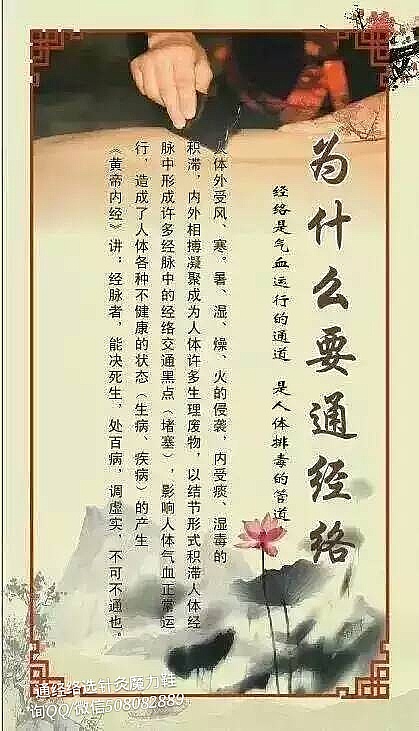 为什么要通经络
经络是气血运行的通道 是人体排毒的管道
人体外受风、寒。暑、湿、燥、火的侵袭，内受痰、湿毒的
积滞，内外相搏凝聚成为人体许多生理废物，以结节形式积滞人体经
脉中形成许多经脉中的经络交通黑点（堵塞），影响人体气血正常运
行，造成了人体各种不健康的状态（生病、疾病）的产生
《黄帝内经》讲：经脉者，能决死生，处百病，调虚实，不可不通也。
通经络选针灸魔力鞋
询QQ 微信508082889